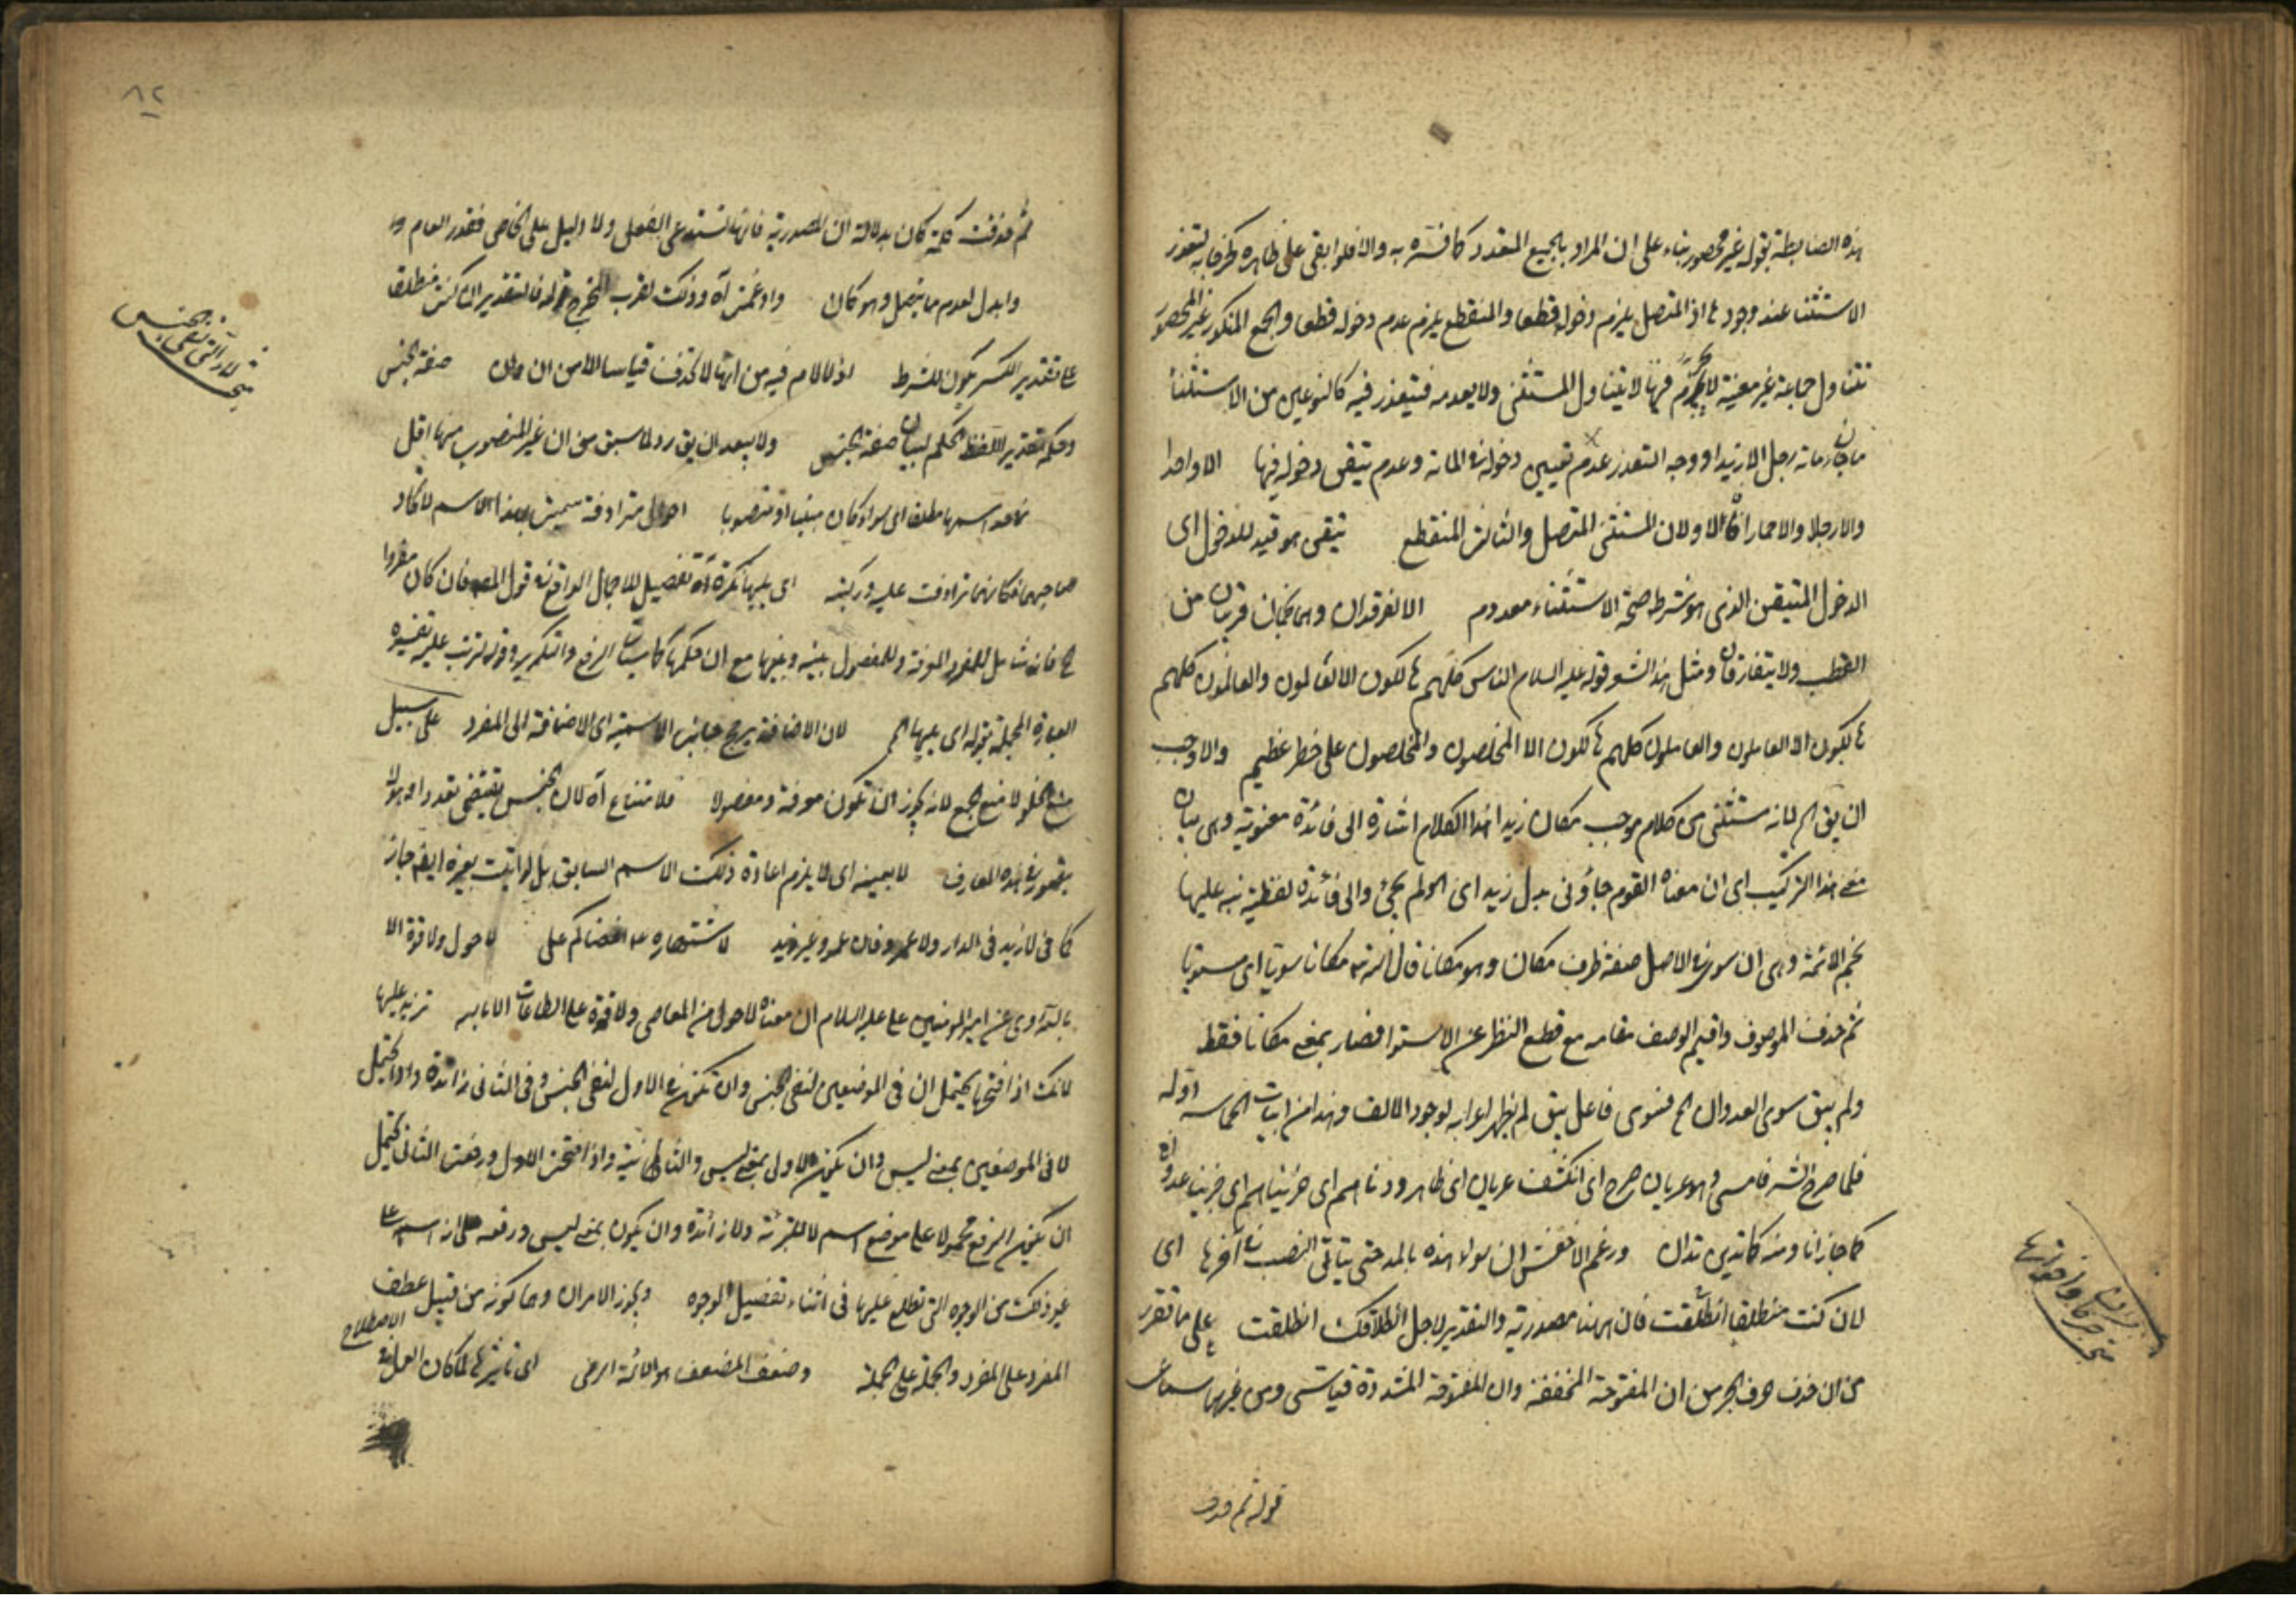 هذه الضابطة بقوله غير محصور بناء على ان المراد بالجميع المتعدد كما فسّره به والا فلو ابقى على ظاهره لتعذر
الاستثناء عند وجود ها اذ المتصل يلزم دخوله قطعا والمنقطع يلزم عدم دخوله قطعا والجمع المنكور غير المحصور
تتناول جماعة غير معينة لا يتناول المستثنى ولا يعدمه فيتعذر فيه كالنوعين من الاستثناء
ما جاءنى مائة رجل الا زيدا ووجه التعذر عدم تعيين دخوله فى المائة وعدم تيقن دخوله فيها الا واحدا
والا رجلا والا حمارا فالاولان للمستثنى المتصل والثالث المنقطع تيقن هو قيد للدخول اى
الدخول المتيقن الذى هو شرط صحة الاستثناء معدوم الا الفرقدان وهما نجمان قريبان من
القطب ولا يتفارقان ومثل هذا الشعر قوله عليه السلام الناس كلهم هالكون الا العالمون والعالمون كلهم
هالكون الا العاملون والعاملون كلهم هالكون الا المخلصون والمخلصون على خطر عظيم والاوجب
ان يق الخ لانه مستثنى من كلام موجب مكان زيد هذا الكلام اشارة الى فائدة معنوية وهى بيان
معنى هذا التركيب اى ان معناه القوم جاؤنى بدل زيد اى الخ لم يجئ والى فائدة لفظية نبه عليها
نجم الائمة وهى ان سوى فى الاصل صفة ظرف مكان وهو مكانا قال الله تع مكانا سوى اى مستويا
ثم حذف الموصوف واقيم الوصف مقامه مع قطع النظر عن الاستواء فصار بمعنى مكانا فقط
ولم يبق سوى العدوان الخ فسوى فاعل يبق لم يظهر اعرابه لوجود الالف وهذا من ابيات الحماسة اوله
فلما صرح الشر فامسى وهو عريان صرح اى انكشف عريان اى ظاهر ودناهم اى جزيناهم اى جزينا عدوان
كما جازانا ومنه كما تدين تدان وزعم الاخفش ان سواء هذه بالمد حتى يتاتى النصب فى آخرها اى
لان كنت منطلقا انطلقت فان ههنا مصدرية والتقدير لاجل انطلاقك انطلقت على ما تقرر
من ان حذف حرف الجر من ان المفتوحة المخففة وان المفتوحة المشددة قياسى ومن غيرهما سماعى
قوله ثم حذف
٨٢
ثم حذفت كلمة كان بدلالة ان المصدرية فانها تستدعى الفعل ولا دليل على الخاص فقدر العام
وابدل لعدم ما يتصل وهو كان وادغمت آه وذلك لقرب المخرج قوله فالتقدير ان كنت منطلقا
على تقدير الكسر يكون للشرط اذ لا لام فيه من انها لا تحذف قياسا الا من ان وان صفة الجنس
وحكمه بتقدير اللفظ الحكم لبيان صفة الجنس ولا يبعد ان يق رد لما سبق من ان غير المنصوب منها اقل
مما عد اسمها مطلقا اى سواء كان مبنيا او منصوبا احوال مترادفة سميت بهذا الاسم لاتحاد
صاحبهما فكانهما ترادفت عليه وركبته اى يليها نكرة آه تفصيل للاجمال الواقع فى قول المصه فان كان مفردا
الخ فانه شامل للمفرد المعرفة وللمفصول بينه وبينها مع ان حكمهما كان الرفع والتكرير وقوله ترتب عليه تفسيره
العبارة المجملة بقوله اى يليها الخ لان الاضافة يرجح جانب الاسمية اى الاضافة الى المفرد على سبيل
منع الخلو لا منع الجمع لانه يجوز ان تكون معرفة ومفصولا فلامتناع آه لان الجنس يقتضى تعددا وهو لا
يتصور فى هذه المعارف لا بعينه اى لا يلزم اعادة ذلك الاسم السابق بل لو اتيت بغيره ايضا جاز
كما فى لا زيد فى الدار ولا عمرو فان عمرو غير زيد لاشتهاره اقضاكم على لا حول ولا قوة الا
بالله روى عن امير المومنين على عليه السلام ان معناه لا حول من المعاصى ولا قوة على الطاعات الا بالله تزيد عليها
لانك اذا فتحتها يحتمل ان فى الموضعين لنفى الجنس وان تكون فى الاول لنفى الجنس وفى الثانى زائدة واذا يحتمل
لا فى الموضعين بمعنى ليس وان يكون الاولى بمعنى ليس والثانية واذا فتحت الاول ورفعت الثانى يحتمل
ان يكون الرفع محمولا على موضع اسم لا للتبرئة ولا زائدة وان يكون بمعنى ليس ورفعه على انه اسمها
غير ذلك من الوجوه التى تطلع عليها فى اثناء تفصيل الوجوه ويجوز الامران وهما كونه من قبيل عطف
المفرد على المفرد والجملة على الجملة وضعف المضعف هو الائمة الرضى اى تاثيرها لما كان العمل فى الاصطلاح